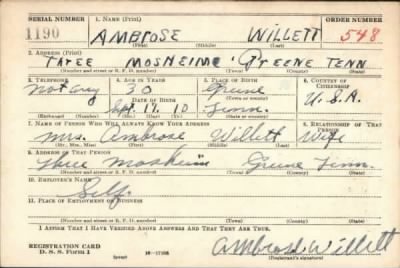 SERIAL NUMBER 1. NAME (Print) ORDER NUMBER
1190 AMBROSE WILLETT 548
(First) (Middle) (Last)
2. ADDRESS (Print)
THREE MOSHEIM GREENE TENN
(Number and street or R. F. D. number) (Town) (County) (State)
3. TELEPHONE 4. AGE IN YEARS 5. PLACE OF BIRTH 6. COUNTRY OF CITIZENSHIP
30 Greene
DATE OF BIRTH U.S.A.
10 Tenn.
(Exchange) (Number) (Mo.) (Day) (Yr.) (State or country)
7. NAME OF PERSON WHO WILL ALWAYS KNOW YOUR ADDRESS 8. RELATIONSHIP OF THAT PERSON
Mrs. Ambrose Willett Wife
(Mr., Mrs., Miss) (First) (Middle) (Last)
9. ADDRESS OF THAT PERSON
Three Mosheim Greene Tenn.
(Number and street or R. F. D. number) (Town) (County) (State)
10. EMPLOYER'S NAME
Self
11. PLACE OF EMPLOYMENT OR BUSINESS
(Number and street or R. F. D. number) (Town) (County) (State)
I AFFIRM THAT I HAVE VERIFIED ABOVE ANSWERS AND THAT THEY ARE TRUE.
REGISTRATION CARD
D. S. S. Form 1 Ambrose Willett
(Registrant's signature)